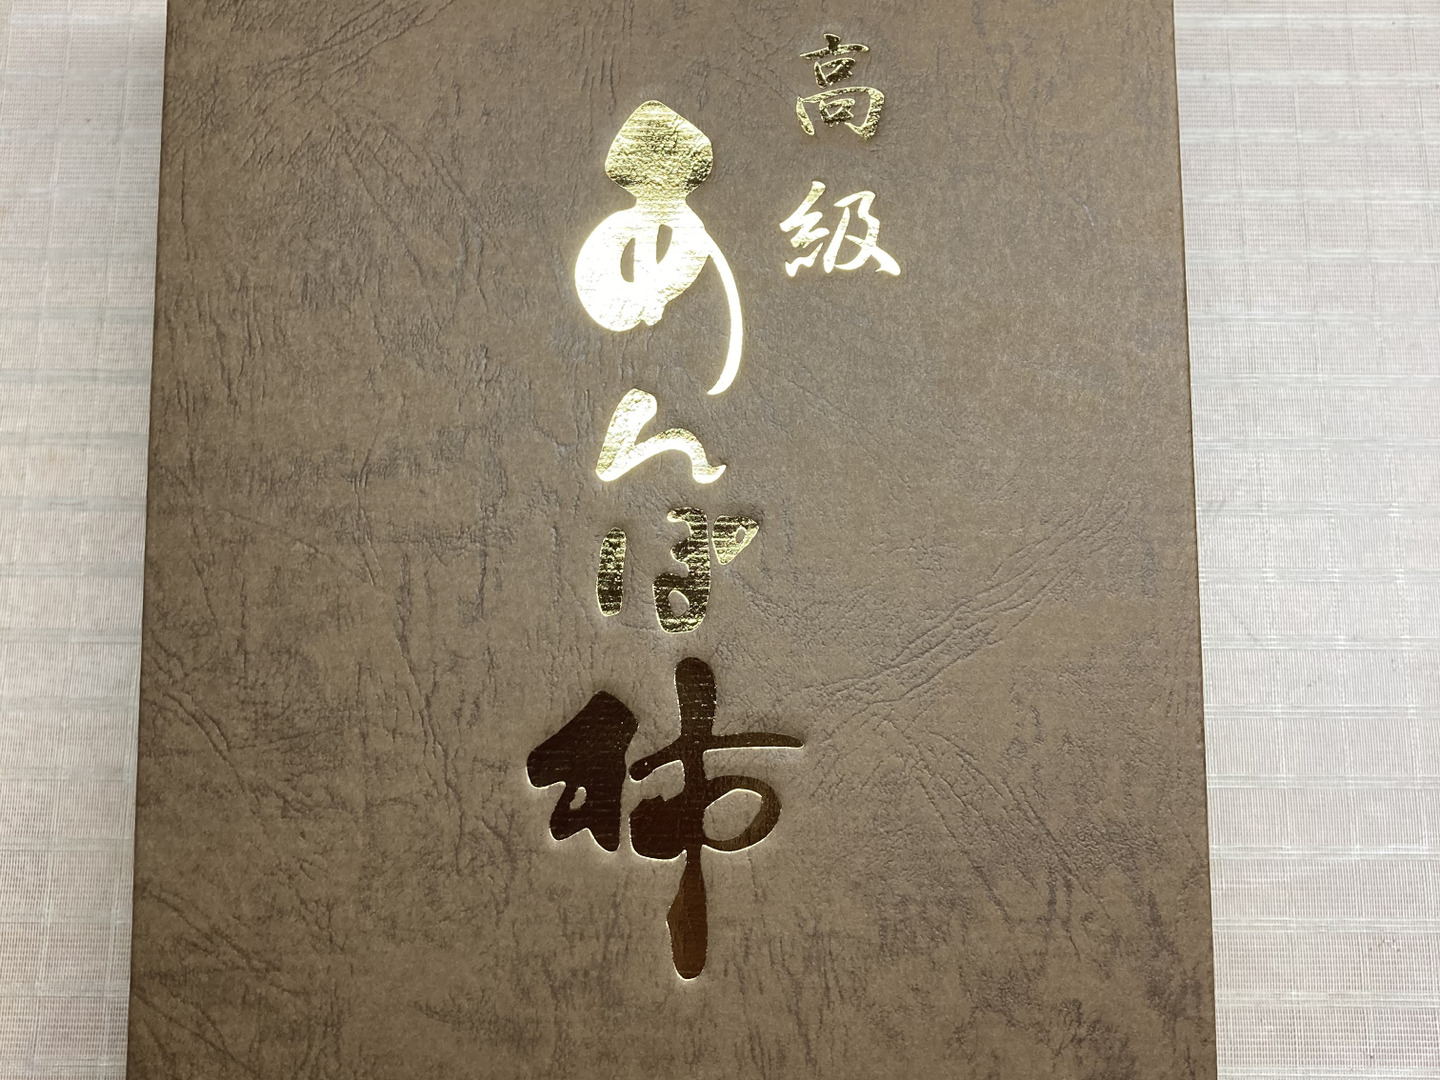 高級
あんぽ柿